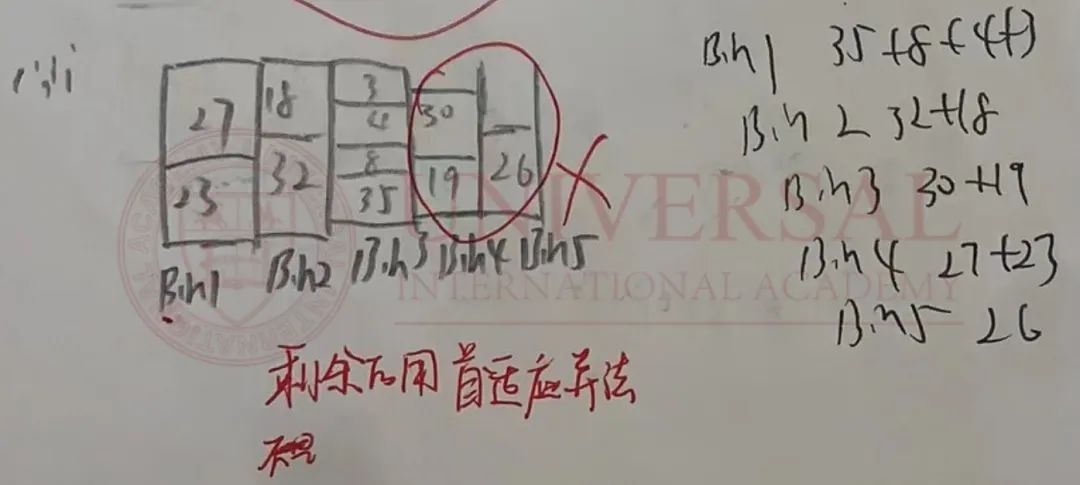 27
23
18
32
3
4
8
35
30
19
26
Bin1 Bin2 Bin3 Bin4 Bin5
Bin1 35+8+4+3
Bin 2 32+18
Bin3 30+19
Bin4 27+23
Bin5 26
剩余应用首适应算法
UNIVERSAL
INTERNATIONAL ACADEMY